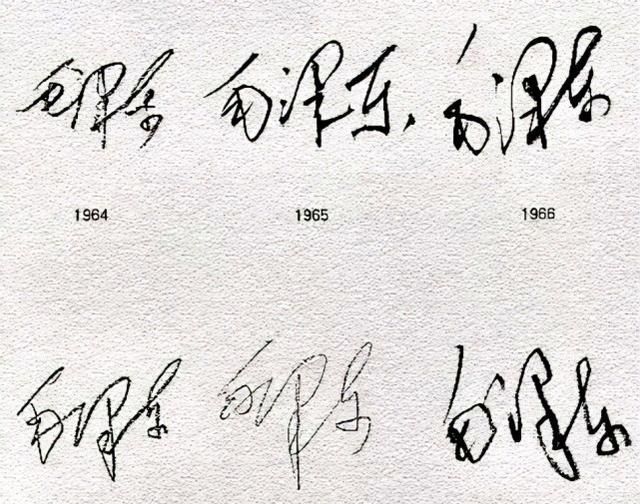 毛泽东 毛泽东 毛泽东
1964 1965 1966
毛泽东 毛泽东 毛泽东